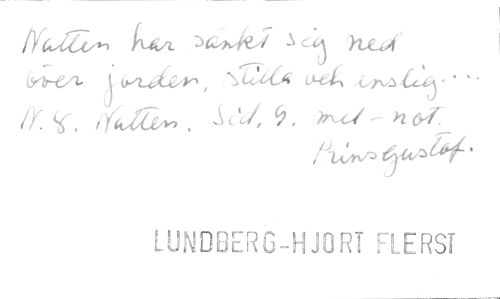 Natten har sänkt sig ned
över jorden, stilla och enslig....
N. 8. Natten. Sid. 9. mel-not.
Prins Gustaf.
LUNDBERG-HJORT FLERST